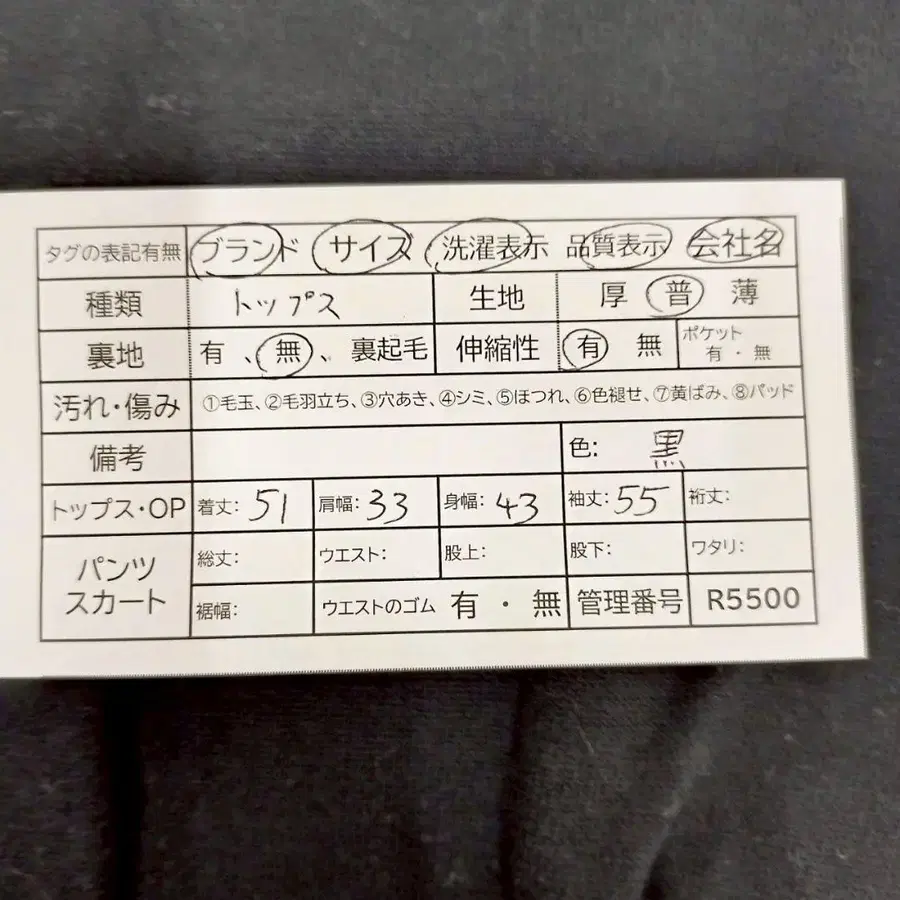 タグの表記有無 ブランド サイズ 洗濯表示 品質表示 会社名
種類 トップス 生地 厚 普 薄
裏地 有、無、裏起毛 伸縮性 有 無 ポケット 有・無
汚れ・傷み ①毛玉、②毛羽立ち、③穴あき、④シミ、⑤ほつれ、⑥色褪せ、⑦黄ばみ、⑧パッド
備考 色: 黒
トップス・OP 着丈: 51 肩幅: 33 身幅: 43 袖丈: 55 裄丈:
パンツ スカート 総丈: ウエスト: 股上: 股下: ワタリ:
裾幅: ウエストのゴム 有・無 管理番号 R5500